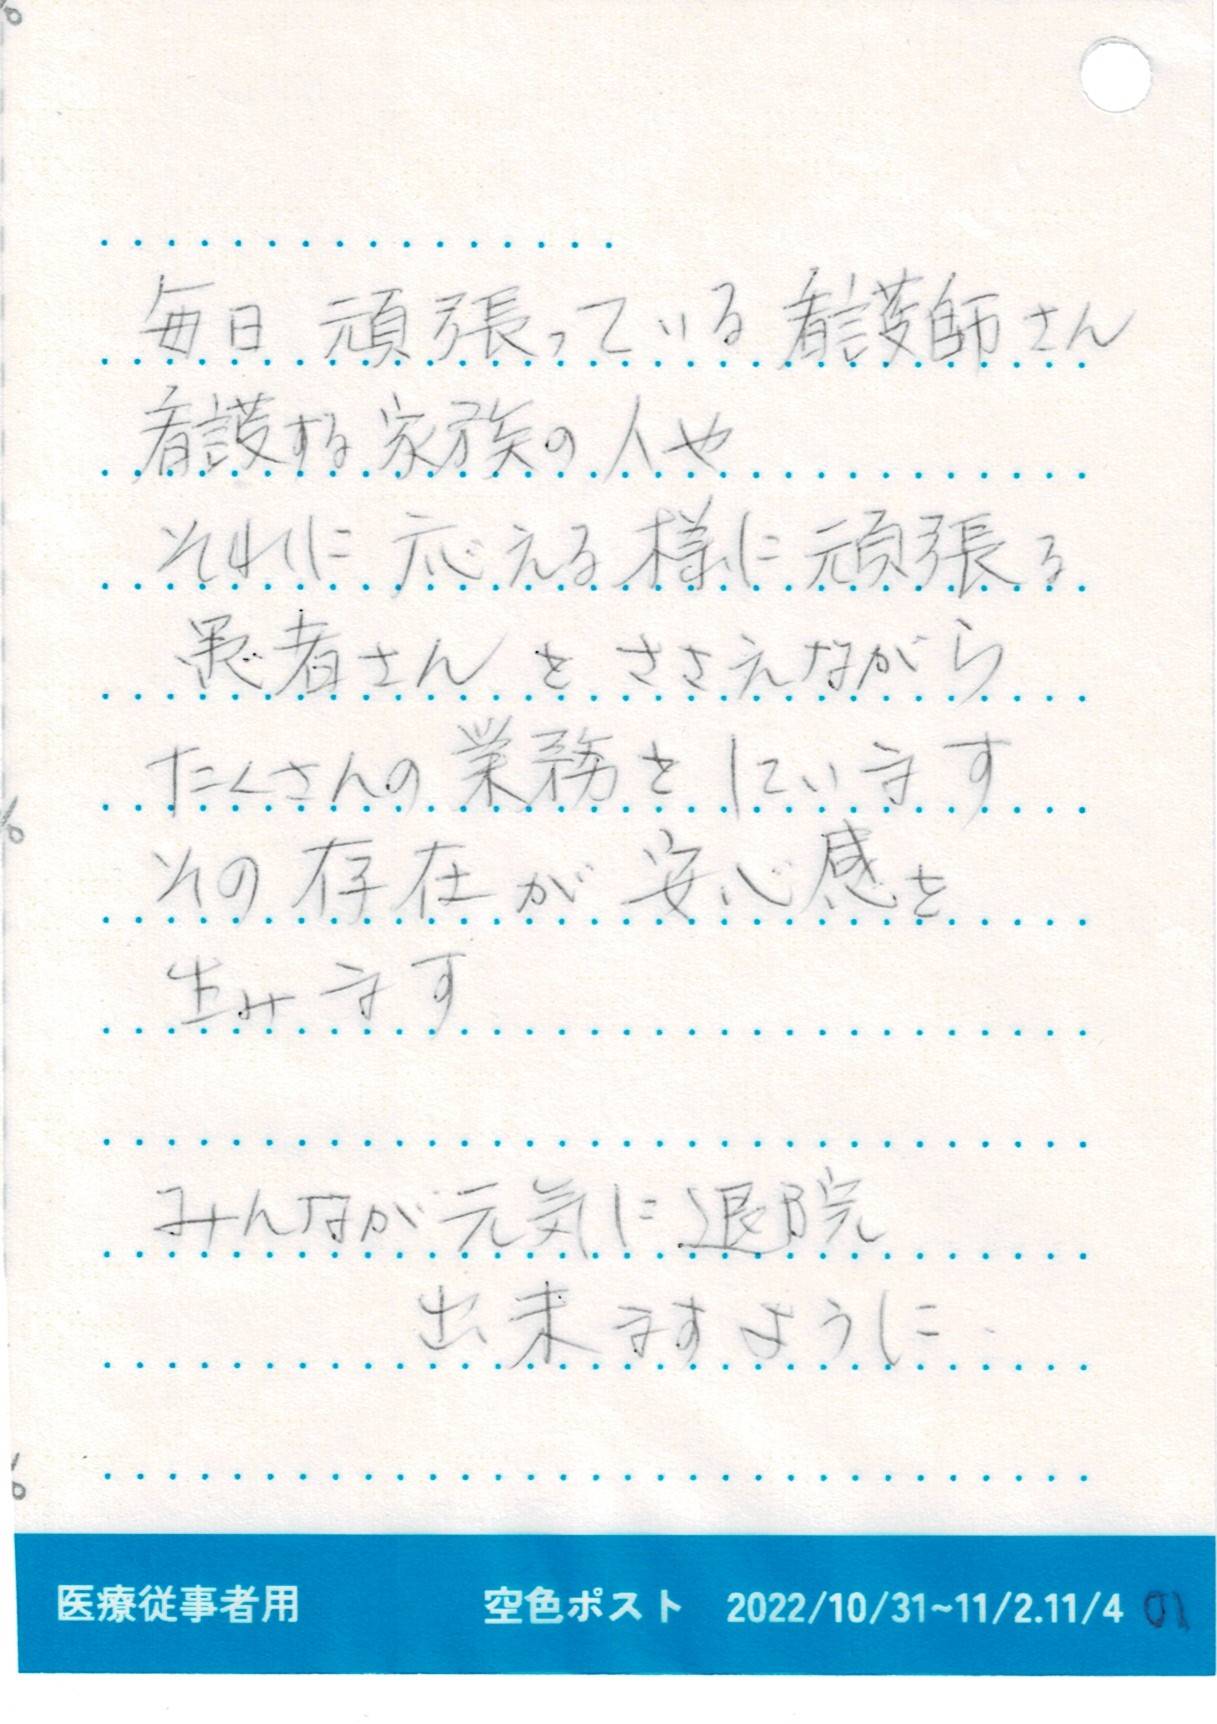 毎日 頑張っている 看護師さん
看護する 家族の 人や
それに 応える 様に 頑張る
患者さん を ささえながら
たくさんの 業務を しています
その 存在が 安心感を
生みます
みんなが 元気に 退院
出来ますように
医療従事者用 空色ポスト 2022/10/31~11/2.11/4